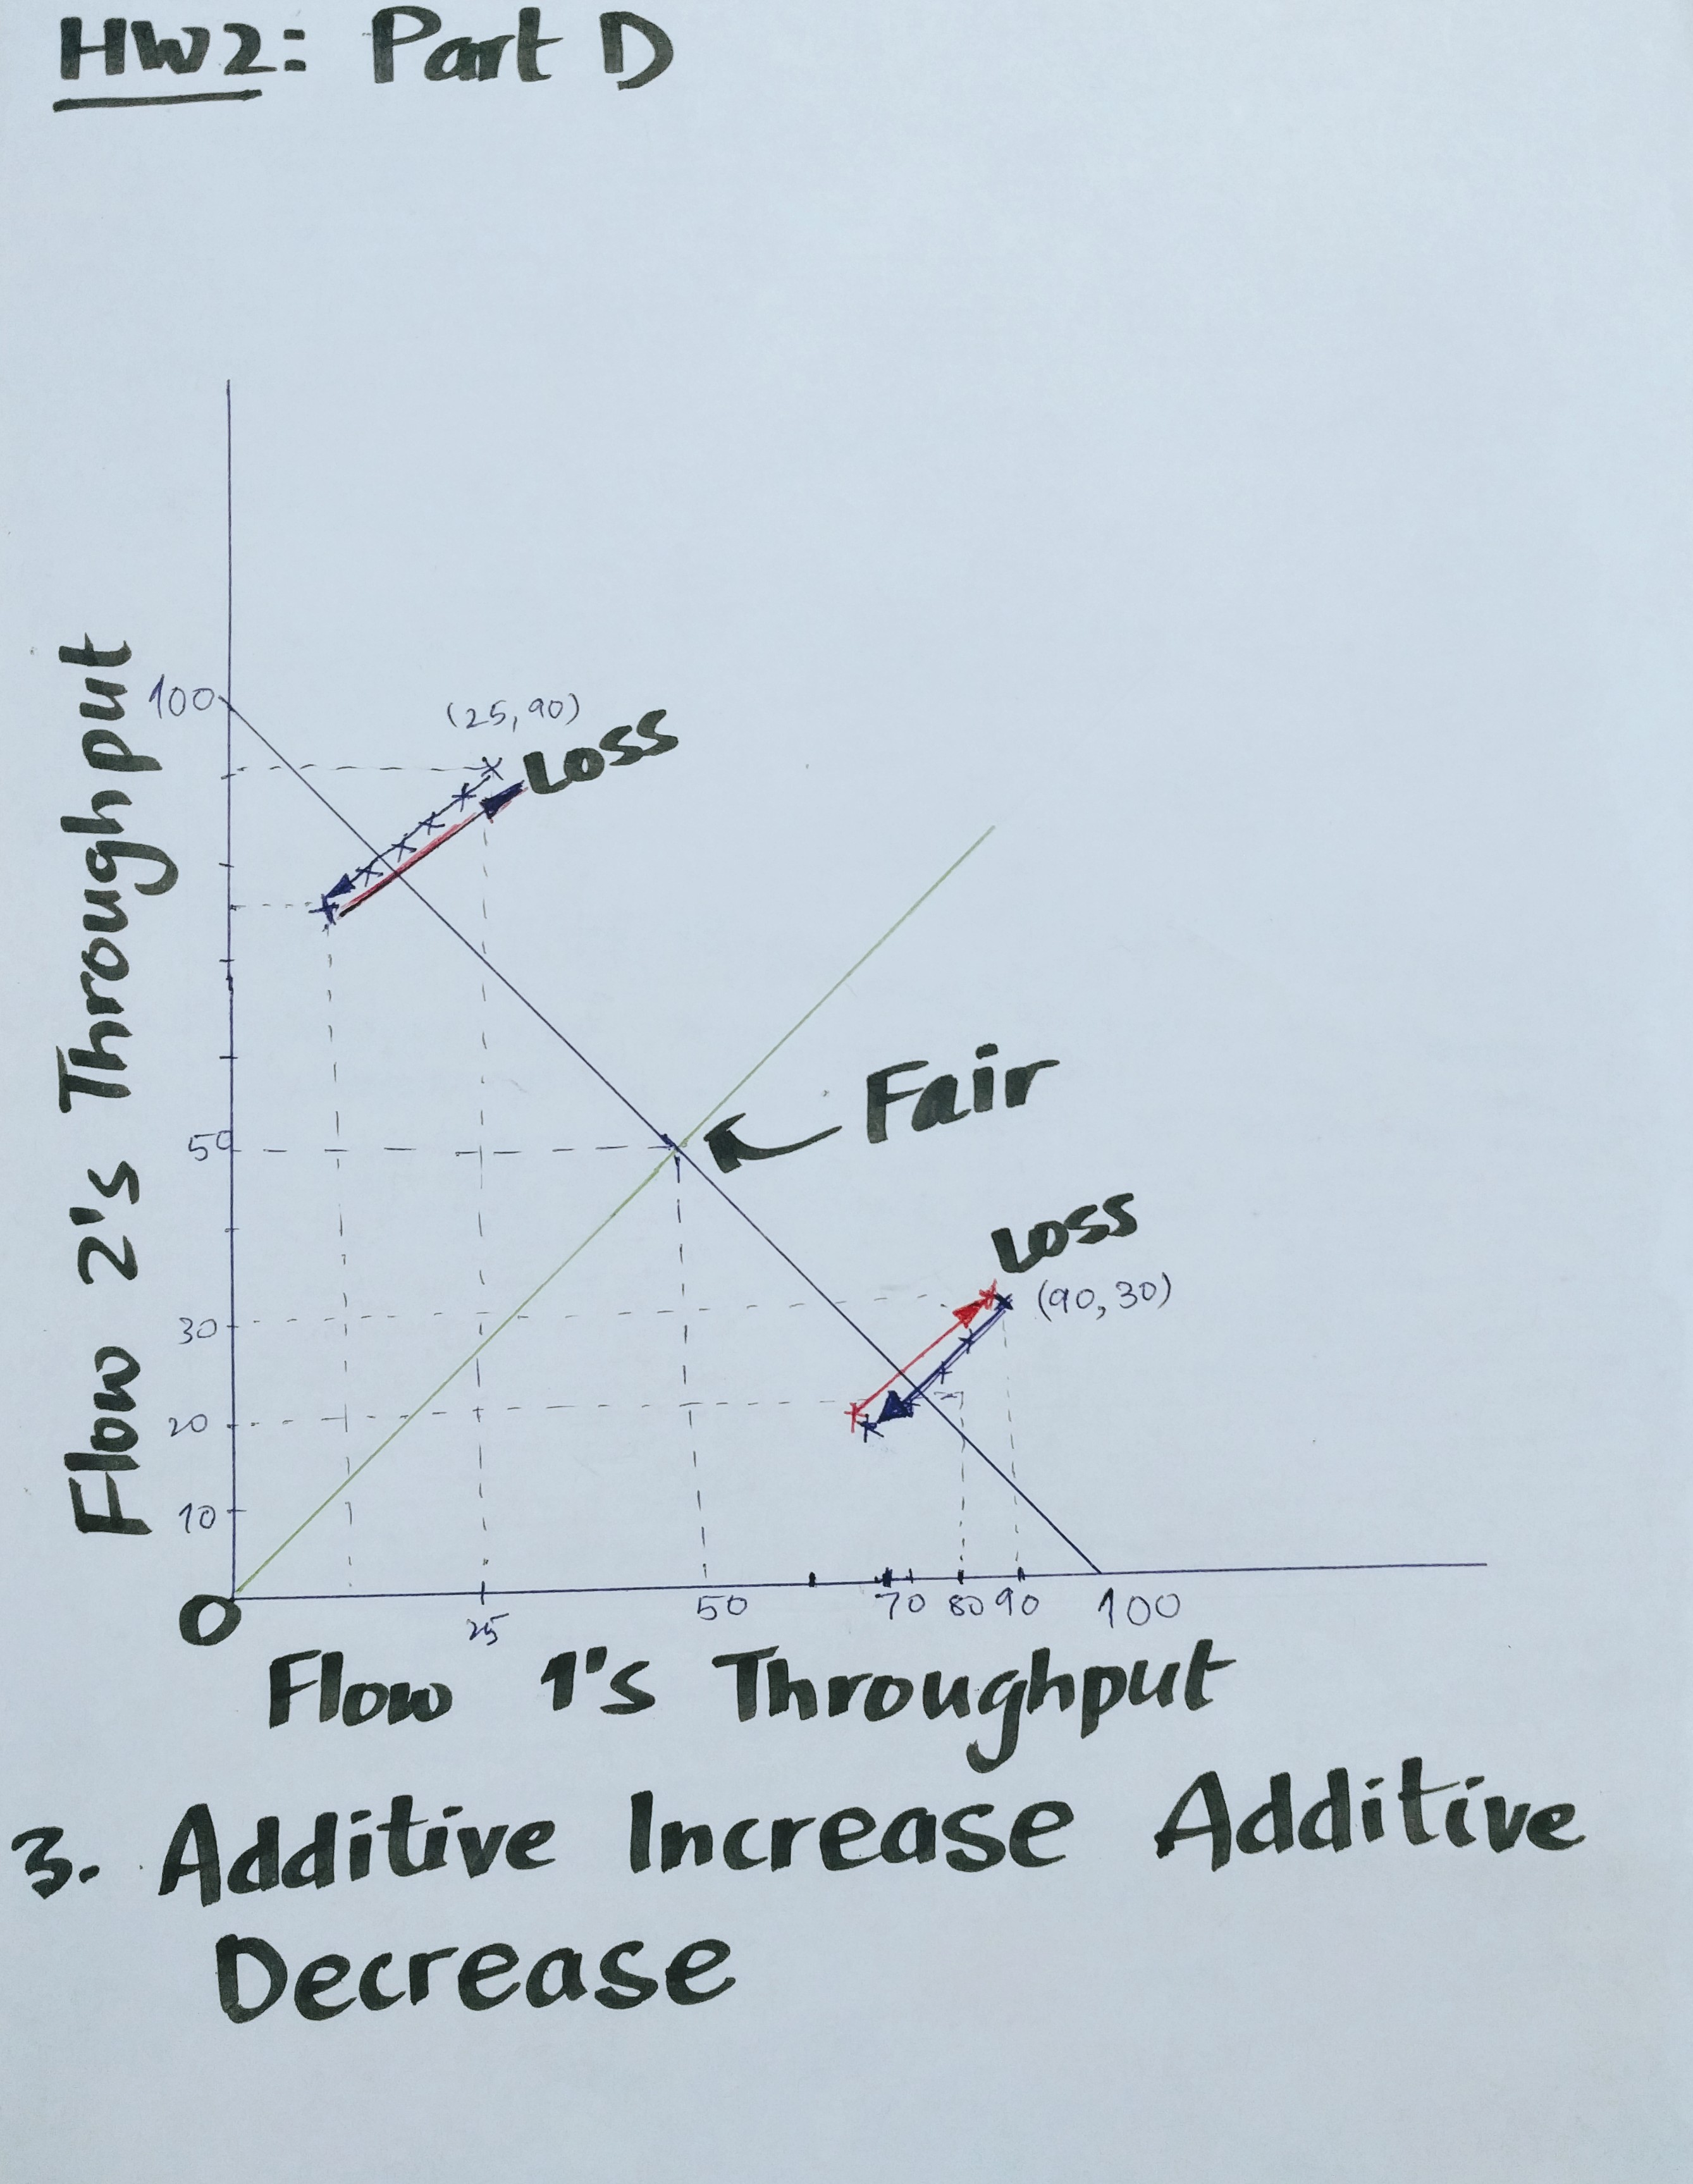 HW2: Part D
100
(25,90)
Loss
Flow 2's Throughput
Fair
50
Loss
(90,30)
30
20
10
0
25
50
70
80
90
100
Flow 1's Throughput
3. Additive Increase Additive
Decrease